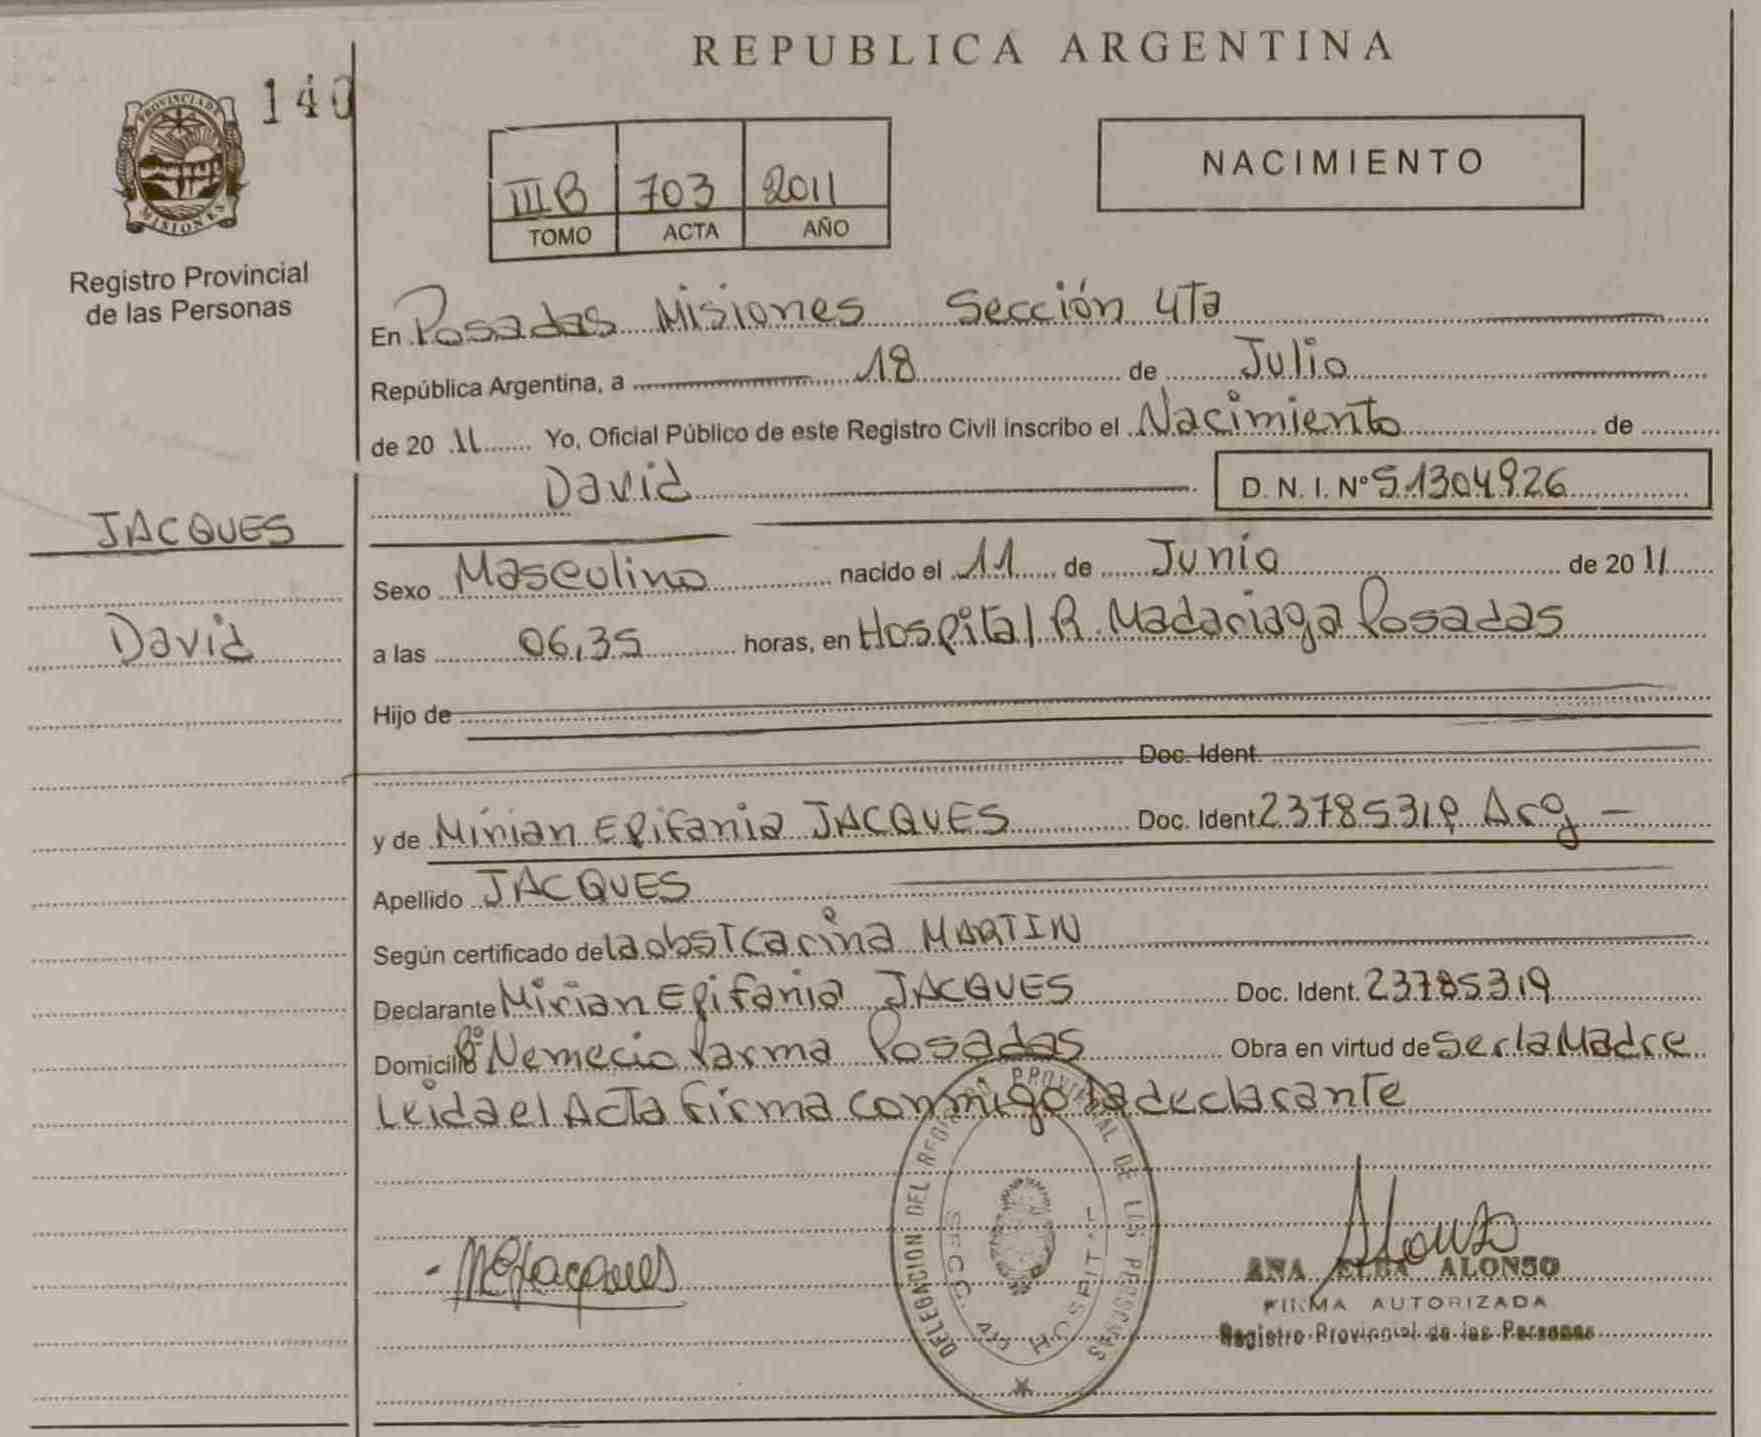 REPUBLICA ARGENTINA
140
PROVINCIA DE
MISIONES
Registro Provincial
de las Personas
III B 703 2011
TOMO ACTA AÑO
NACIMIENTO
En Posadas Misiones Sección 4Ta
República Argentina, a 18 de Julio
de 20 11 Yo, Oficial Público de este Registro Civil inscribo el Nacimiento de
David D. N. I. Nº 51304926
JACQUES
Sexo Masculino nacido el 11 de Junio de 20 11
David
a las 06,35 horas, en Hospital R. Madariaga Posadas
Hijo de
Doc. Ident.
y de Mirian Epifania JACQUES Doc. Ident 23785319 Arg -
Apellido JACQUES
Según certificado de la obst Carina MARTIN
Declarante Mirian Epifania JACQUES Doc. Ident. 23785319
Domicilio Bº Nemecio Parma Posadas Obra en virtud de Ser la Madre
Leida el Acta firma conmigo la declarante
DELEGACION DEL REGISTRO PROVINCIAL DE LAS PERSONAS
SECC. 4ta HOSPITAL
MEJacques
Alonso
ANA ELBA ALONSO
FIRMA AUTORIZADA
Registro Provincial de las Personas